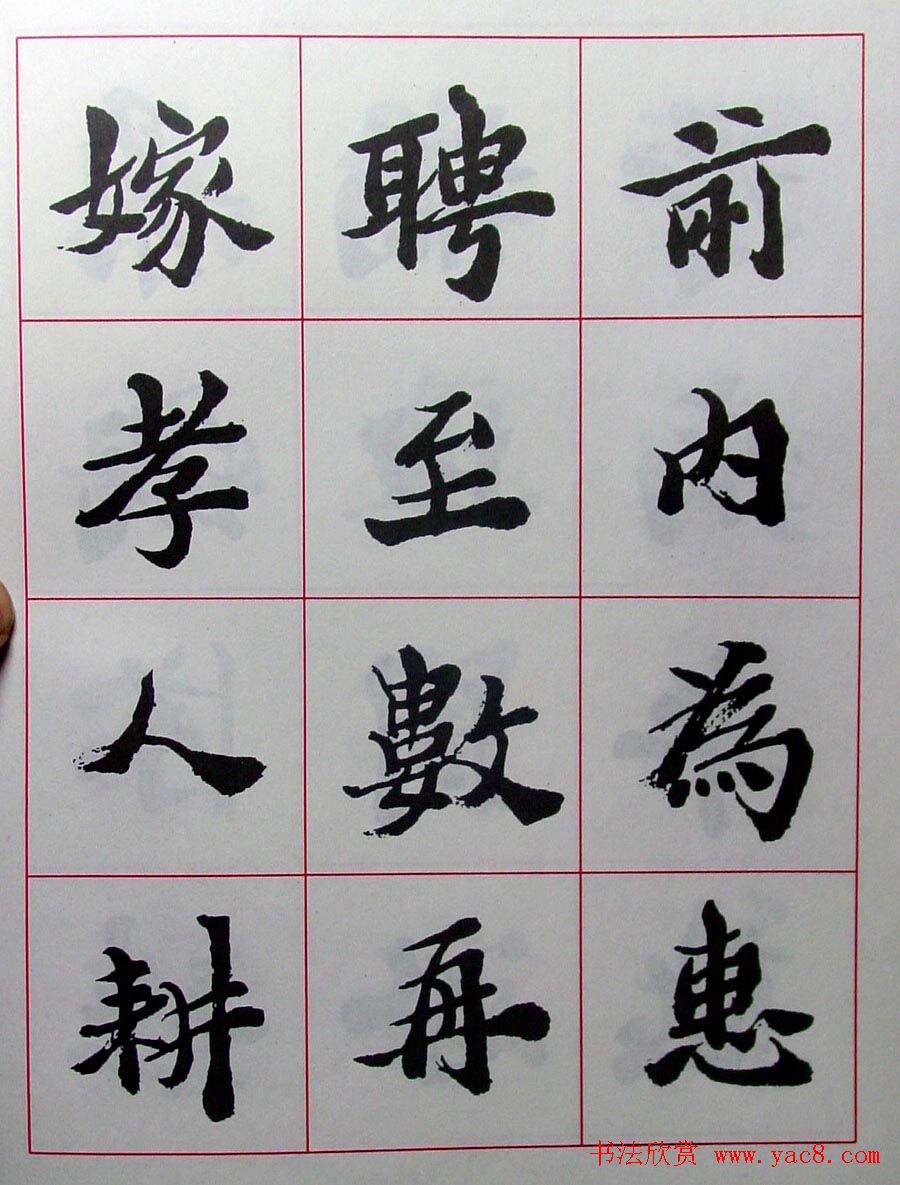 前内為惠
聘至數再
嫁孝人耕
书法欣赏 www.yac8.com